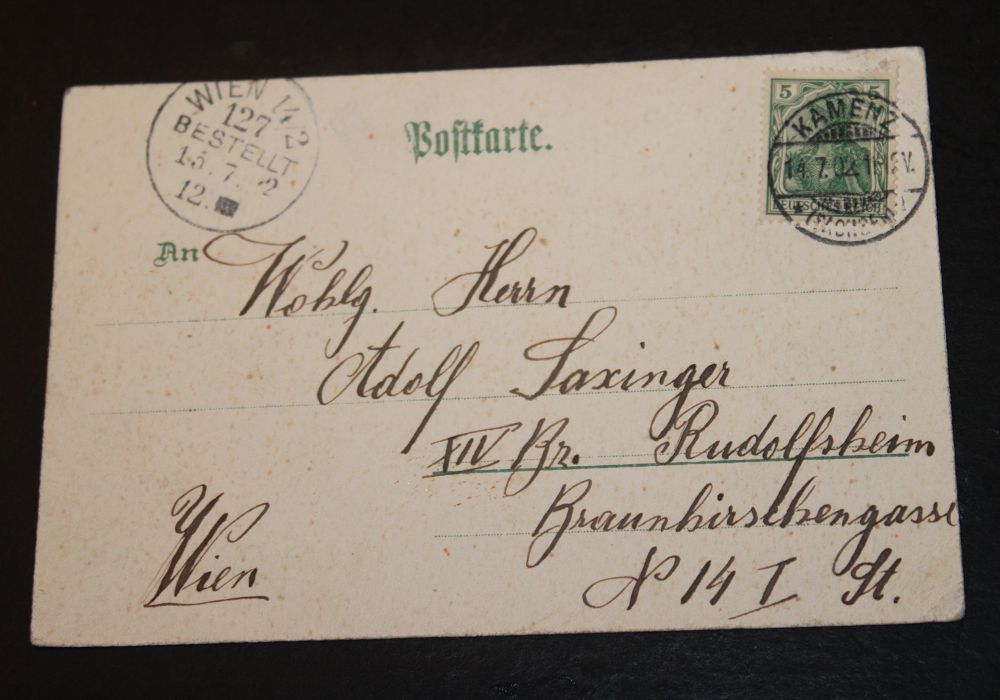 WIEN 14/2
127
BESTELLT
15. 7. 02
12.
Postkarte.
5 5
DEUTSCHES REICH
KAMENZ
14. 7. 02
An Wohlg. Herrn
Adolf Saxinger
XIV Br. Rudolfsheim
Braunhirschengasse
Wien
N 14 I St.